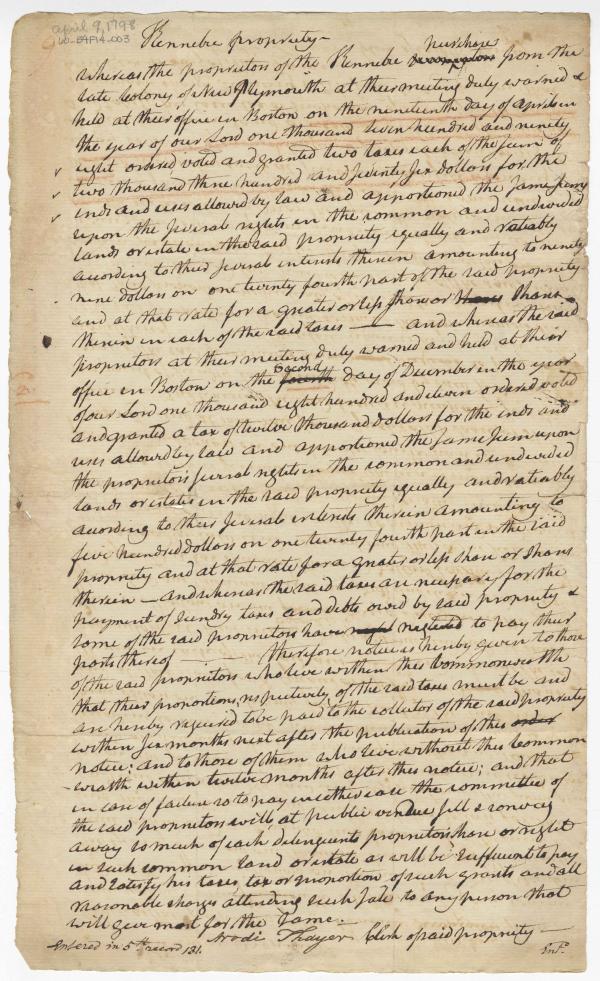 april 9, 1798
W-E4F14-003
Kennebec propriety —
whereas the proprietors of the Kennebec purchase from the
late Colony of New Plymouth at their meeting duly warned &
held at their office in Boston on the nineteenth day of april in
the year of our Lord one thousand seven hundred and ninety
eight ordered voted and granted two taxes each of the sum of
two thousand three hundred and seventy six dollars for the
ends and uses allowed by law and apportioned the same sums
upon the several rights in the common and undivided
lands or estate in the said propriety equally and rateably
according to their several interests therein amounting to ninety
nine dollars on one twenty fourth part of the said propriety
and at that rate for a greater or less share or shares
therein in each of the said taxes — and whereas the said
proprietors at their meeting duly warned and held at their
office in Boston on the second fourth day of December in the year
of our Lord one thousand eight hundred and eleven ordered voted
and granted a tax of twelve thousand dollars for the ends and
uses allowed by law and apportioned the same sum upon
the proprietors several rights in the common and undivided
lands or estates in the said propriety equally and rateably
according to their several interests therein amounting to
five hundred dollars on one twenty fourth part in the said
propriety and at that rate for a greater or less share or shares
therein — and whereas the said taxes are necessary for the
payment of sundry taxes and debts owed by said propriety &
some of the said proprietors have neglected to pay their
parts thereof — therefore notice is hereby given to those
of the said proprietors who live within this Commonwealth
that their proportions, respectively of the said taxes must be and
are hereby required to be paid to the collector of the said propriety
within six months next after the publication of this order
notice; and to those of them who live without this Common
-wealth within twelve months after this notice; and that
in case of failure so to pay in either case the committee of
the said proprietors will at public vendue sell & convey
away so much of each delinquents proprietors share or right
in such common land or estate as will be sufficient to pay
and satisfy his taxes, tax or proportion of such grants and all
reasonable charges attending such sale to any person that
will give most for the same.
Arodi Thayer Clerk of said propriety —
Entered in 5th record 131.
Ent.